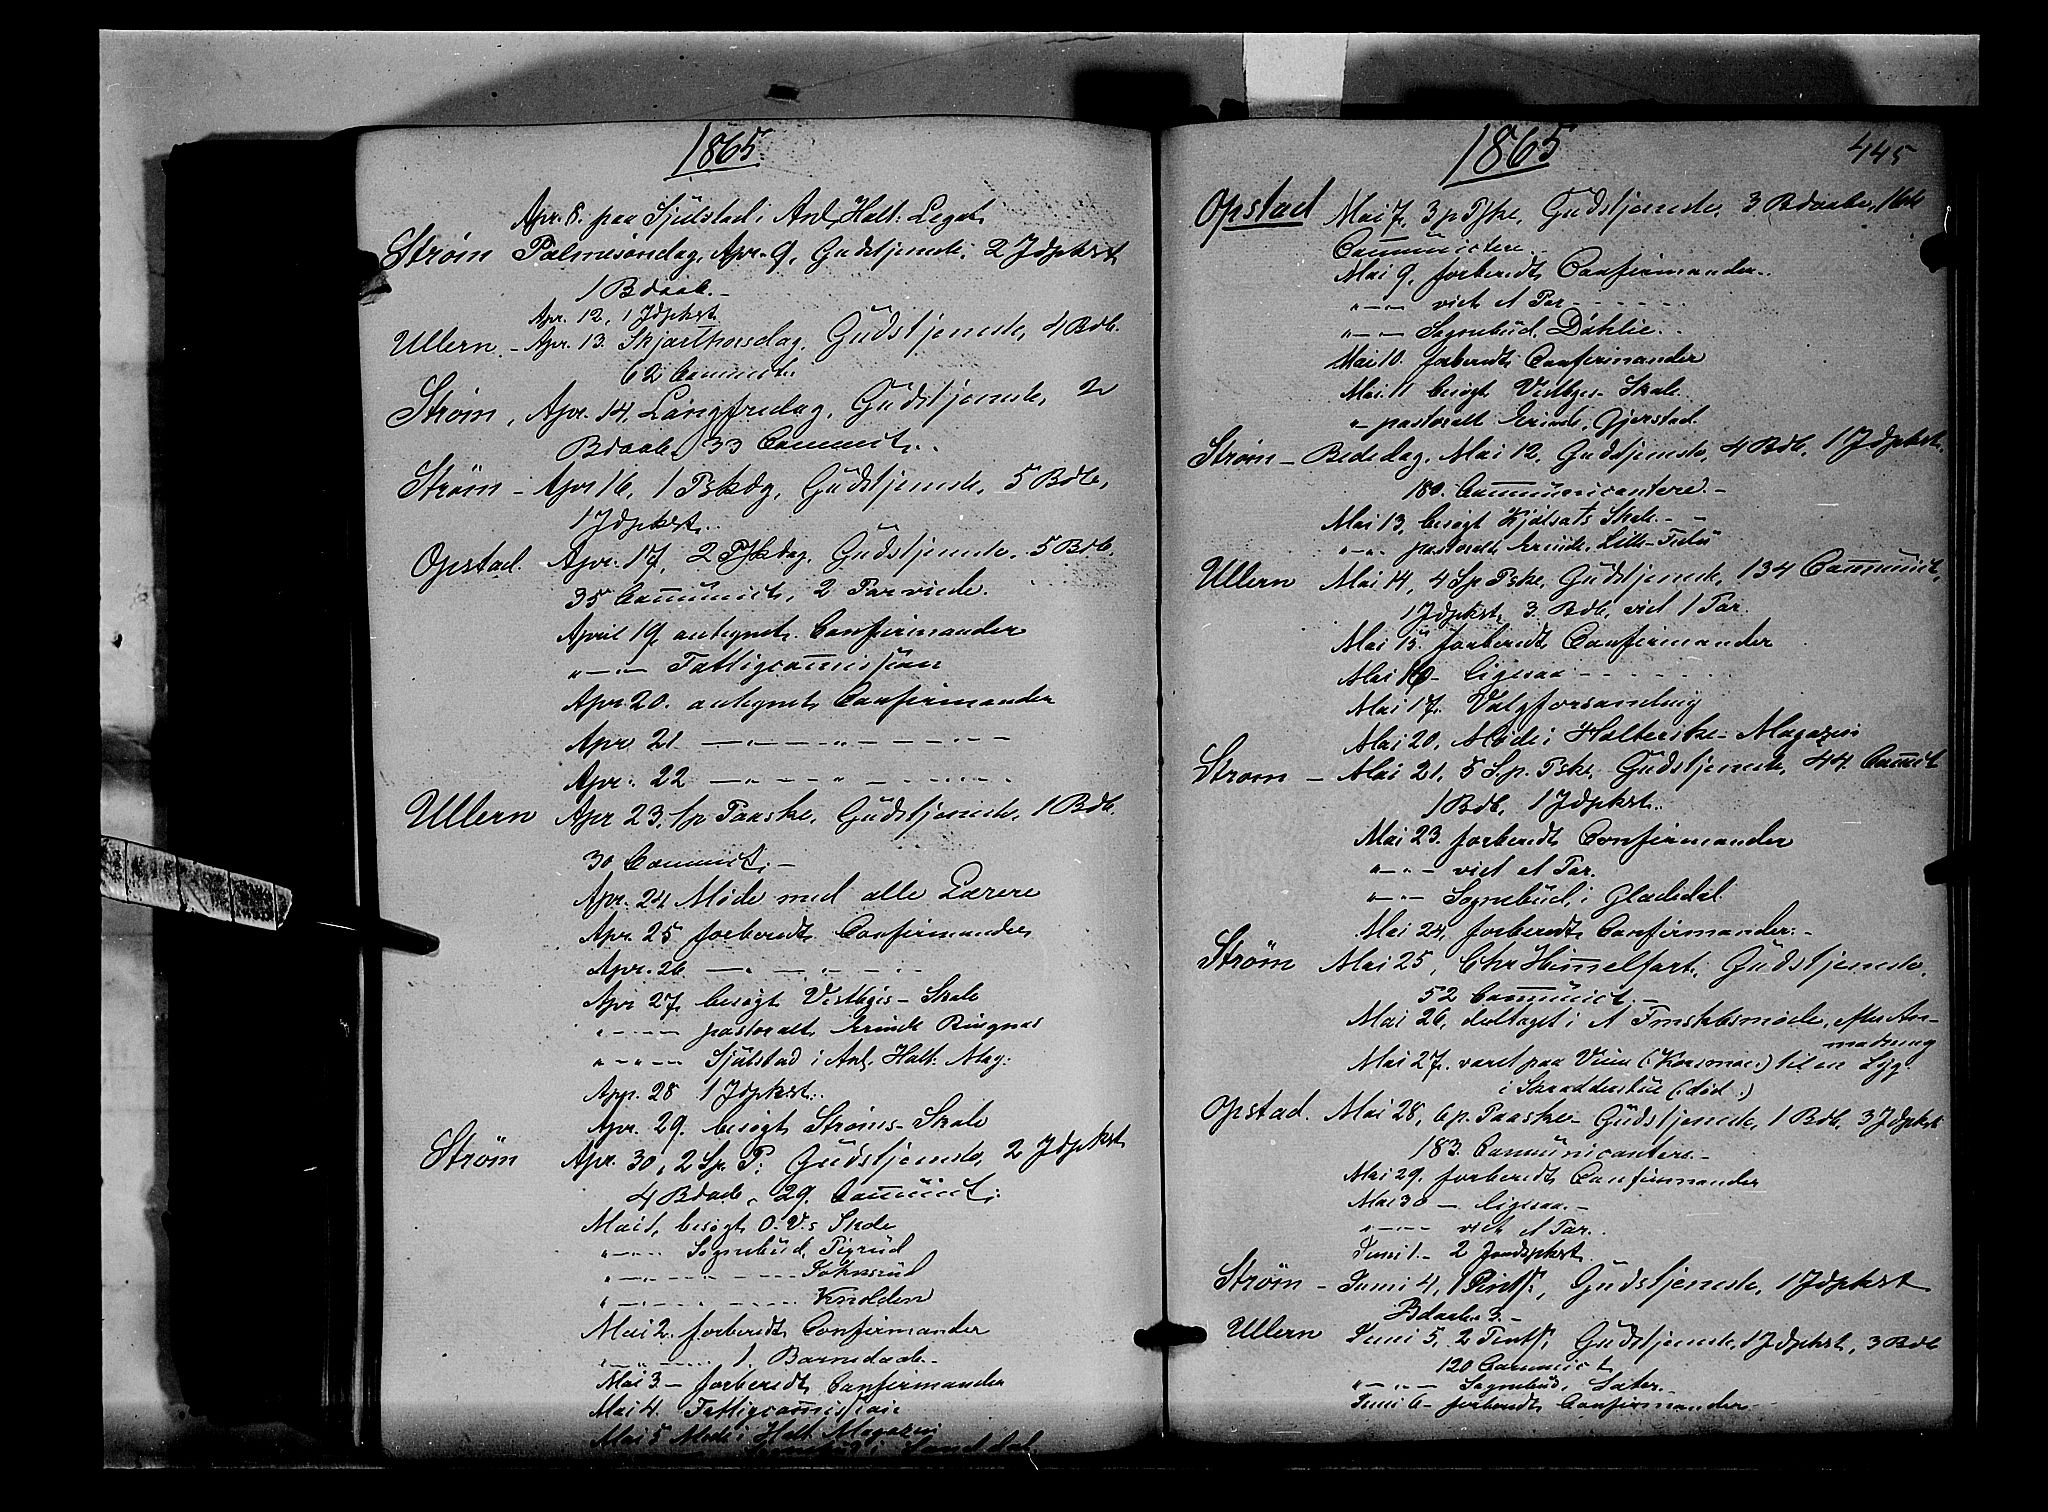 1865
Apr. 8. paa Sjulstad i Anl. Halt. Legat
Strøm Palmesøndag, Apr. 9, Gudstjeneste, 2 Jdpkst
1 Bdaab. –
Apr. 12, 1 Jdpkst
Ullern – Apr. 13. Skjærthorsdag, Gudstjeneste, 4 Bdb.
62 Communict.
Strøm, Apr. 14, Langfredag, Gudstjeneste, 2
Bdaab, 33 Communict.
Strøm – Apr. 16, 1 Pskdg, Gudstjeneste, 5 Bdb,
1 Jdpkst.
Opstad. Apr. 17, 2 Pskdag, Gudstjeneste, 5 Bdb.
35 Communict, 2 Par viede.
April 19 antegnet Confirmander
„ — „ — Fattigcommission
Apr. 20. antegnet Confirmander
Apr. 21 — „ — „ — — —
Apr. 22 — „ — „ — — —
Ullern Apr. 23, 1 p. Paaske, Gudstjeneste, 1 Bdb.
30 Communict. –
Apr. 24 Møde med alle Lærere
Apr. 25 forberedt Confirmander
Apr. 26 — „ — „ — —
Apr. 27, besøgt Vestbgs – Skole
„ — „ — pastoralt Erinde Ringnæs
„ — „ — Sjulstad i Anl. Halt. Mag:
Apr. 28 1 Jdpkst.
Apr. 29. besøgt Strøms – Skole
Strøm Apr. 30, 2 Sp. P: Gudstjeneste, 2 Jdpkst
4 Bdaab, 29. Communict.
Mai 1, besøgt O. V.s Skole
„ — „ Sognebud, Pigrud
„ — „ — „ —
„ — „ — „ — Knolden
Mai 2. forberedt Confirmander
„ — „ — 1 Barnedaab –
Mai 3 – forberedt Confirmander
Mai 4. Fattigcommission
Mai 5 Møde i Halt. Magazin
1865 445
Opstad Mai 7, 3 p Pske, Gudstjeneste, 3 Bdaabe,
Communictere
Mai 9, forberedt Confirmander
„ — „ — viet et Par
„ — „ — Sognebud, Dahlie
Mai 10. forberedt Confirmander
Mai 11 besøgt Vestbgs – Skole
„ – pastoralt Erinde, Gjerstad
Strøm – Bededag, Mai 12, Gudstjeneste, 4 Bdb, 1 Jdpkst,
180. Communicantere. –
Mai 13, besøgt Kjølsæts Skole. –
„ — „ pastoralt Erinde, Lille-
Ullern Mai 14, 4 Sp Pske, Gudstjeneste, 134 Communict,
1 Jdpkst, 3. Bdb, viet 1 Par.
Mai 15 forberedt Confirmander
Mai 16 – ligesaa
Mai 17. Valgforsamling
Mai 20, Møde i Halterske – Magazin
Strøm – Mai 21, 5 Sp. Pske, Gudstjeneste, 44 Communict
1 Bdb, 1 Jdpkst.
Mai 23. forberedt Confirmander
„ — „ — viet et Par.
„ — „ — Sognebud, i Glædedal
Mai 24, forberedt Confirmander –
Strøm Mai 25, Chr Himmelfart, Gudstjeneste,
52 Communict –
Mai 26, deltaget i et Fmskbsmøde, efter An-
modning
Mai 27. været paa Vien (: :) til en Syg
i Skræddestue (: død :)
Opstad. Mai 28, 6 p. Paaske – Gudstjeneste, 1 Bdb, 3 Jdpkst
183. Communicantere. –
Mai 29. forberedt Confirmander
Mai 30 – ligesaa. –
„ — „ — viet et Par.
Juni 1. – 2 Jordspkst.
Strøm – Juni 4, 1 Pints:, Gudstjeneste, 1 Jdpkst
Bdaab 3. –
Ullern Juni 5, 2 Pints:, Gudstjeneste, 1 Jdpkst, 3 Bdb
120 Communict
„ — „ — Sognebud, Sæter. –
Juni 6 – forberedt Confirmander –